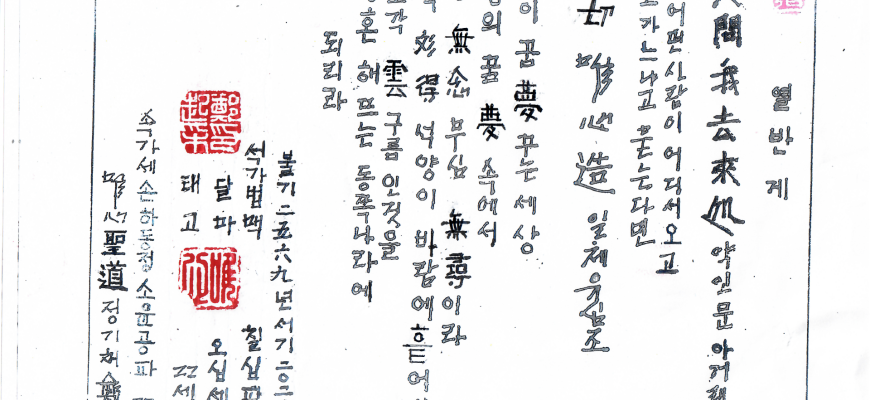 열반게
人問我去來処 약인문아거래
어떤사람이어디서오고
가느냐고 묻는다면
切唯心造 일체유심조
이 꿈夢꾸는세상
의 꿈 夢 속에서
無念무심 無尋이라
득 妙得 석양이 바람에흩어
조각 雲구름인것을
혼 해뜨는동쪽나라에
되리라
불기二五六九년서기二0二
석가법맥 칠십
달파 오십세
태고
속가세손하동정소윤공파
唯心聖道정기